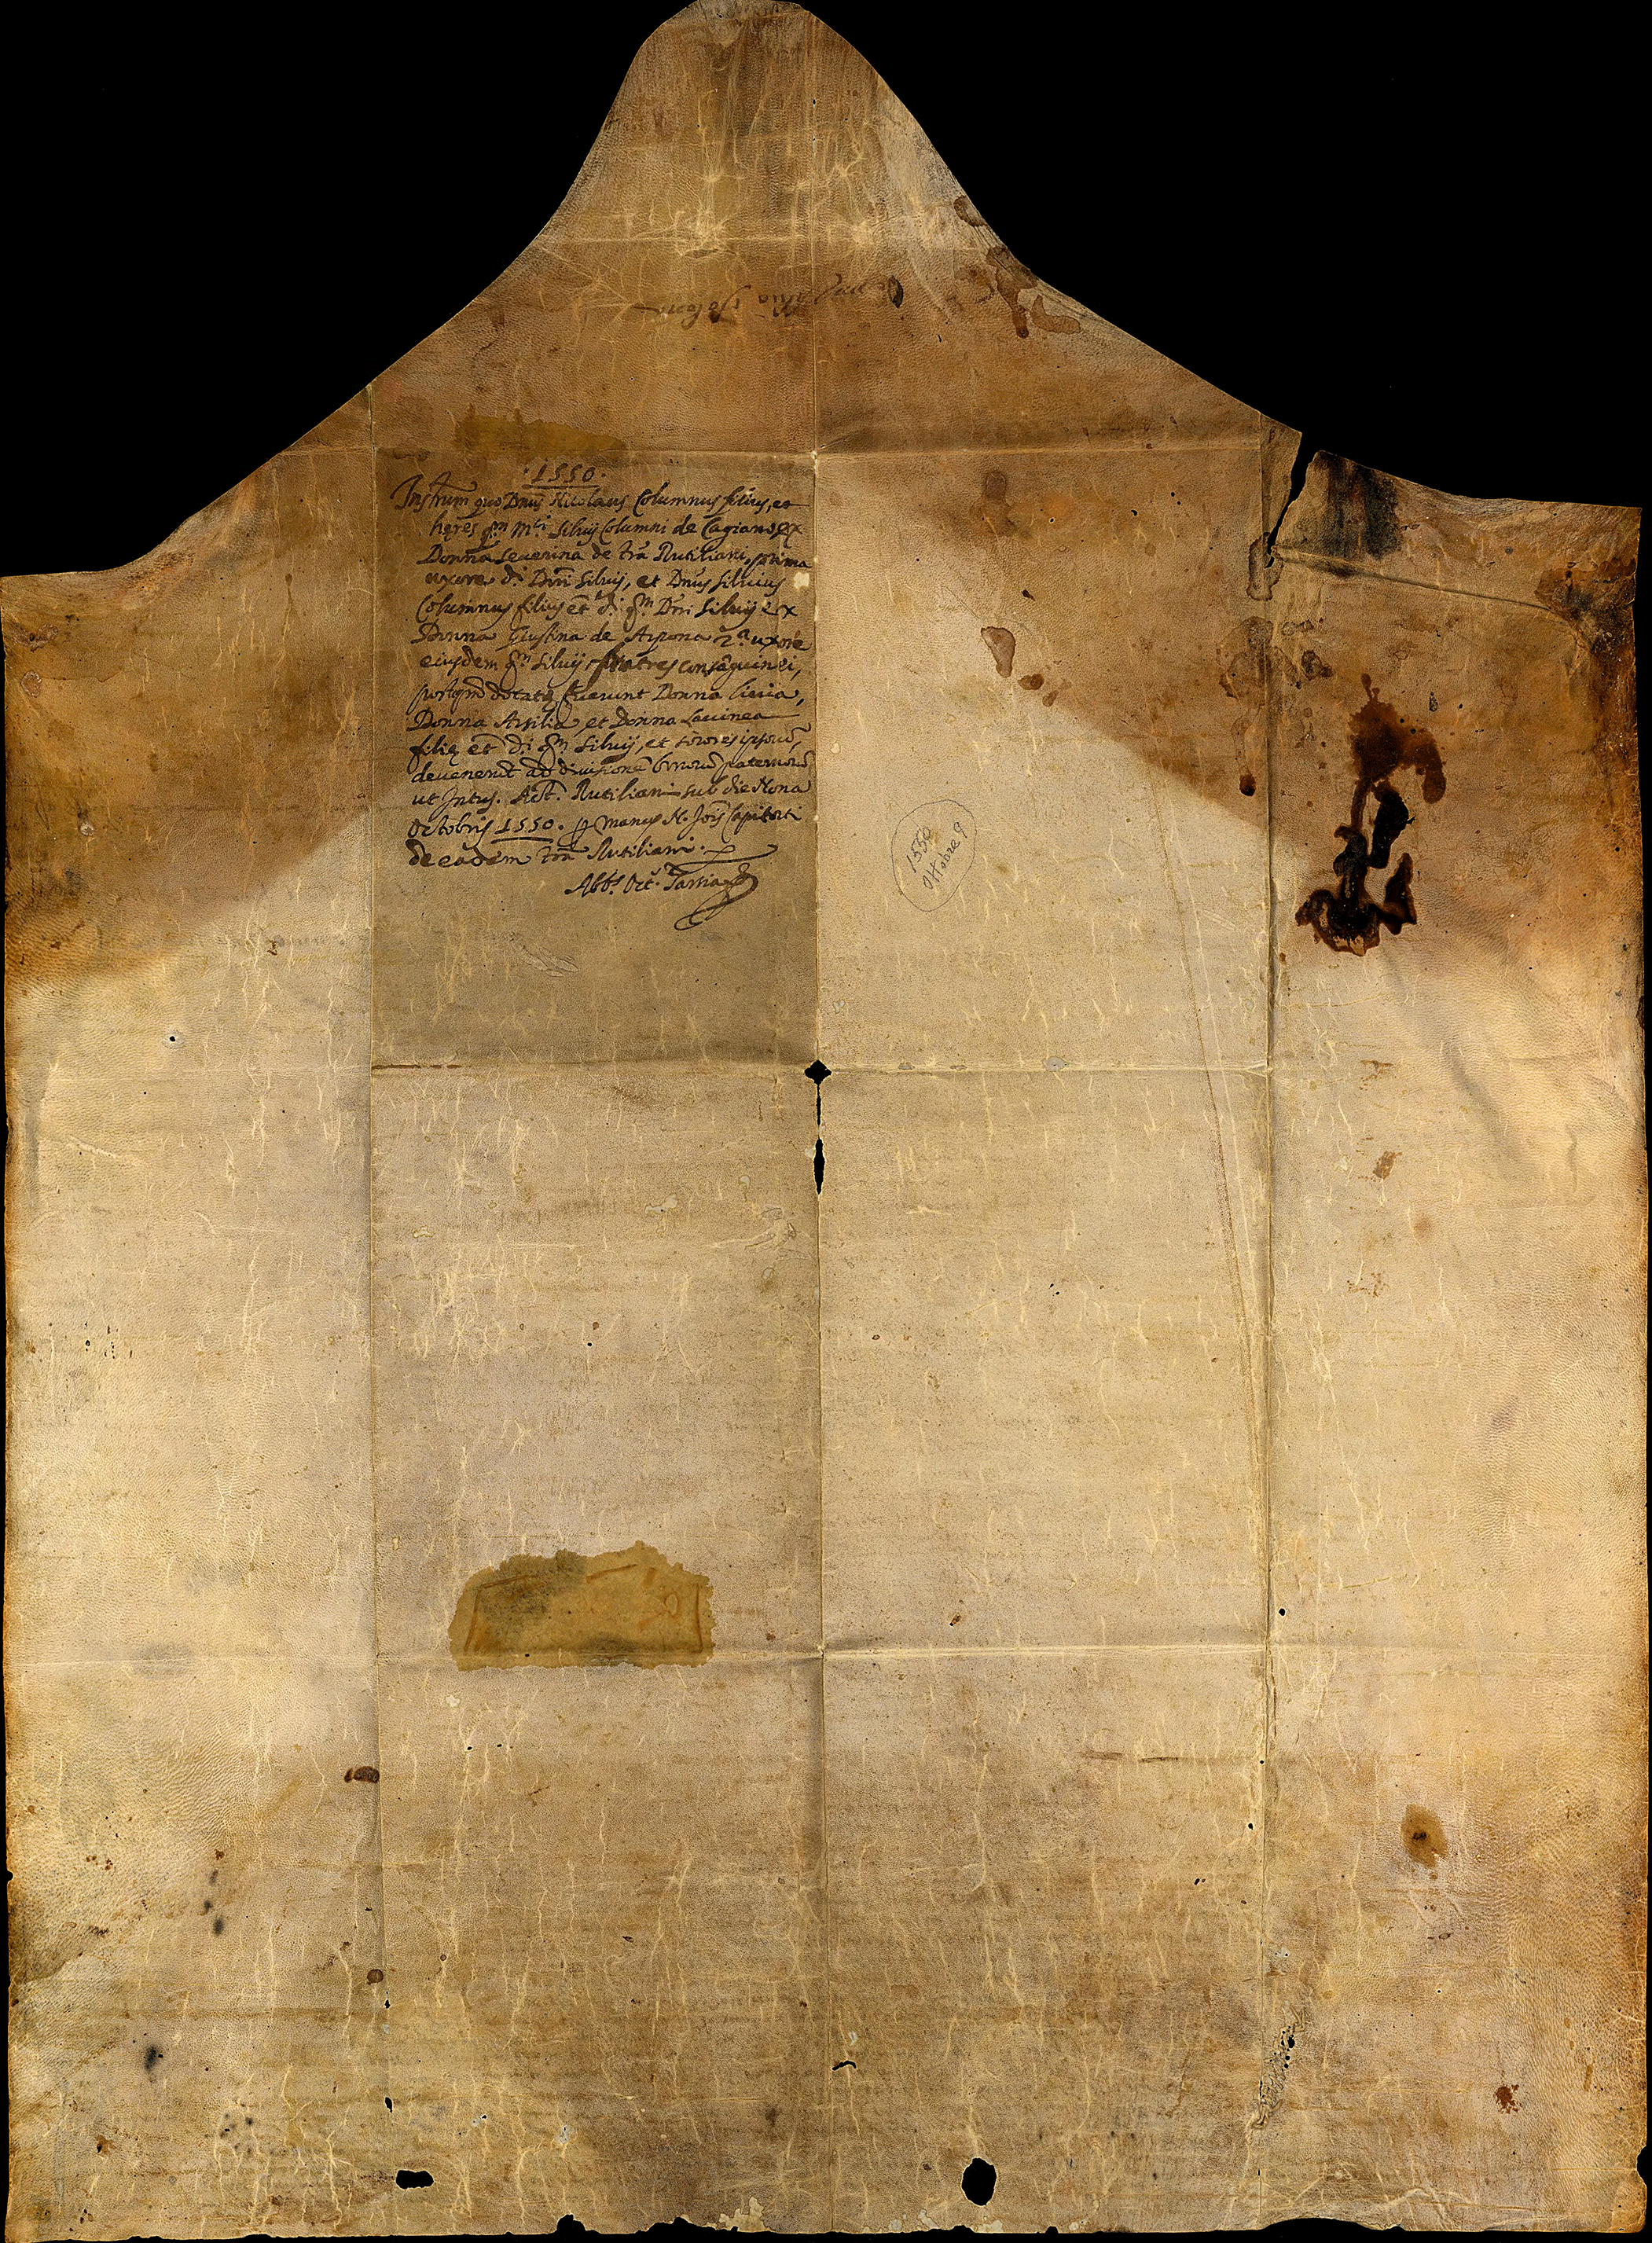 · 1550 ·
Instrum̃ quo Dnũs Nicolaus Columnus filius, et
hęres qm̃ Mci Siluij Columni de Cagiano ex
Donna Seuerina de trã Rutiliani prima
uxore di Dni Siluij, et Dnũs Siluius
Columnus filius et di qm̃ Dni Siluij ex
Donna Giustina de Arpona 2a uxore
eiusdem qm̃ Siluij fratres consãguinei,
postqm̃ dotatę fuerunt Donna Liuia,
Donna Arsilia, et Donna Lauinea
filię et di qm̃ Siluij, et sorores ipsorũ,
deuenerũt ad diuisionẽ bonorũ paternorũ
ut Intus. Act. Rutiliani sub die Nona
Octobris 1550. p manus N. Jois Capitoti
de eadem trã Rutiliani.
Abbs Oct. Tarsia
1550
Ottobre 9